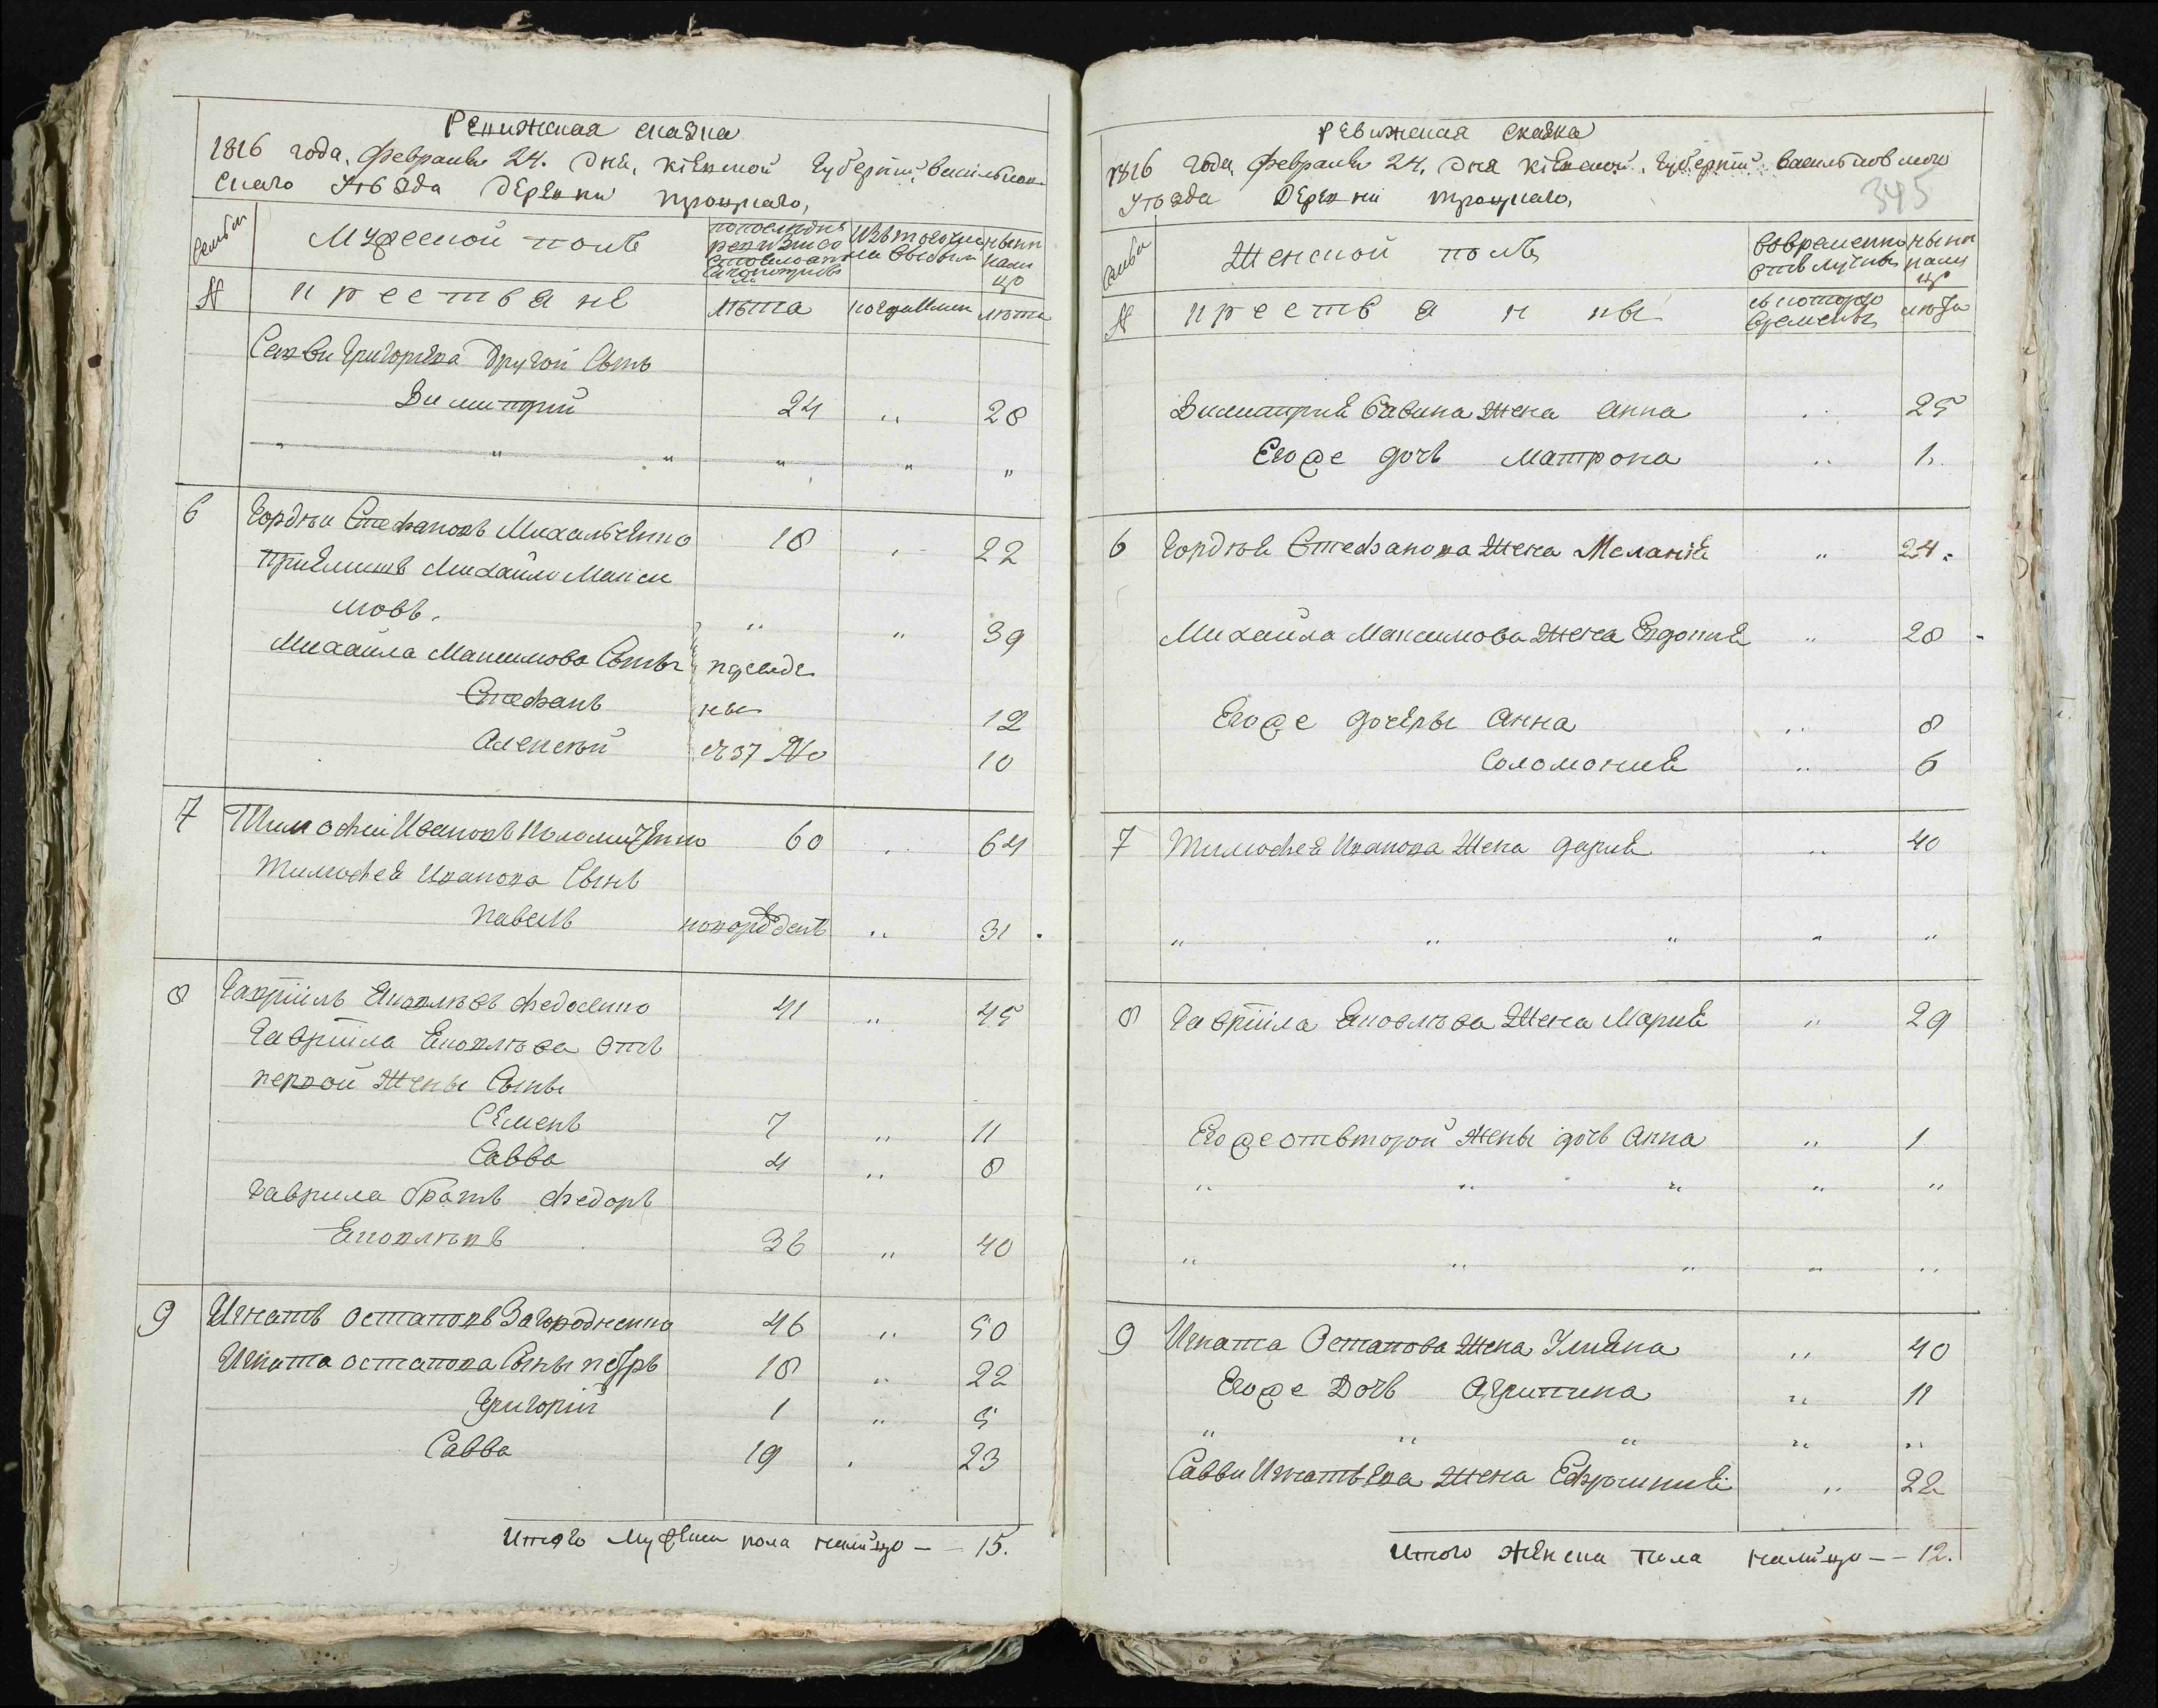 Ревижская сказка
1816 года, Февраля 24. дня, кіевской губерніи, васильков
скаго уѣзда деревни троцкаго,
Семьи
Мужеской полъ
попоследней
ревизіи со
стояло
изъ того числа
выбыло
нынѣ
нали
цо
№
крестьяне
лѣта
когда
лѣта
Саввы Григорьева другой Сынъ
Димитрій 24 " 28
" " " " " "
6 Гордѣй Стефановъ Михальченко 18 " 22
приемышъ Михайло Макси
мовъ. " " 39
Михайла Максимова Сыны
Стефанъ 12
Алексѣй 10
7 Тимофей Ивановъ Коломійченко 60 " 64
Тимофея Иванова Сынъ
Павелъ 31
8 Гавріилъ Яковлѣвъ Федосенко 41 " 45
Гавріила Яковлѣва отъ
первой жены Сыны
Семенъ 7 " 11
Савва 4 " 8
Гаврила братъ Федоръ
Яковлѣвъ 36 " 40
9 Игнатъ Остаповъ Загородненко 46 " 50
Игната Остапова Сыны петръ 18 " 22
Григорій 1 " 5
Савва 19 " 23
Итого мужеска пола налицо — — 15.
Ревижская Сказка
1816 года, Февраля 24, дня кіевской, губерніи васильковскаго
уѣзда деревни троцкаго,
345
Семьи
Женской полъ
вовременной
отлучкѣ
нынѣ
нали
цо
№
крестьянки
съ котораго
времени
лѣта
Димитрія Савина жена Анна " 25
Его же дочь Матрона " 1.
6 Гордѣя Стефанова жена Меланія " 24.
Михайла Максимова жена Евдокія " 28
Его же дочеры Анна " 8
Соломонія " 6
7 Тимофея Иванова жена Дарія " 40
" " " " "
8 Гавріила Яковлѣва жена Марія " 29
Его же отвторой жены дочь Анна " 1
" " " " "
" " " " "
9 Игната Остапова жена Ульяна " 40
Его же Дочь Агрипина " 11
" " " " "
Саввы Игнатьева жена Ефросинія " 22
Итого женска пола налицо — — 12.